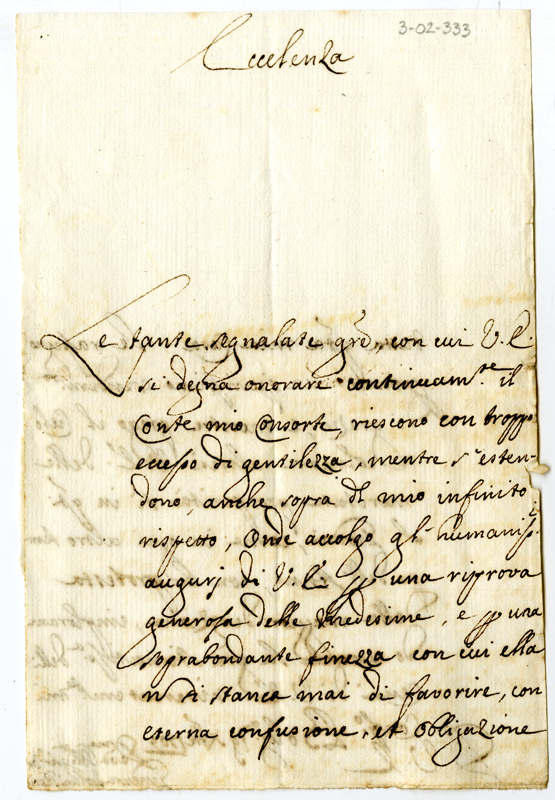 3-02-333
Eccelenza
Le tante segnalate gr.e, con cui V. E.
si degna onorare continuam.te il
Conte mio Consorte, riescono con troppo
eccesso di gentilezza, mentre s'esten-
dono, anche sopra il mio infinito
rispetto, Onde accolgo gl' humaniss.
augurj di V. E. una riprova
generosa delle medesime, e una
soprabondante finezza con cui ella
n si stanca mai di favorire, con
eterna confusione, et obligazione